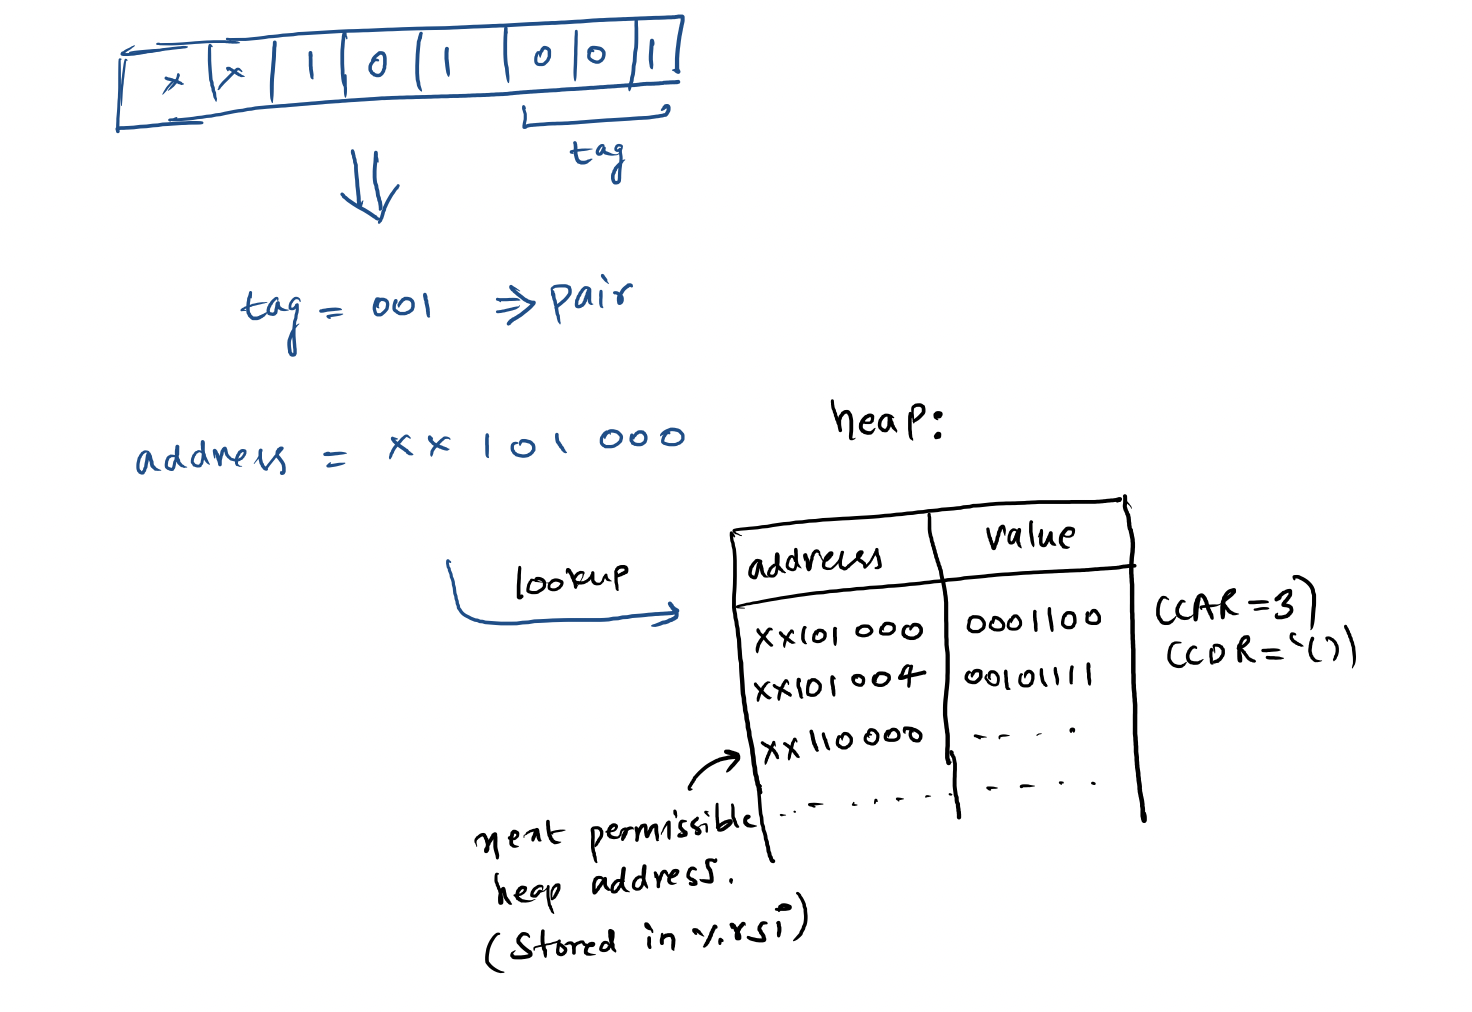 x x 1 0 1 0 0 1
tag
tag = 001 ⇒ pair
address = xx 101 000
heap:
lookup
address value
xx101 000 0001100
xx101 004 00101111
xx 110 000 - - - -
(CAR = 3)
(CDR = '())
next permissible
heap address.
(stored in %rsi)